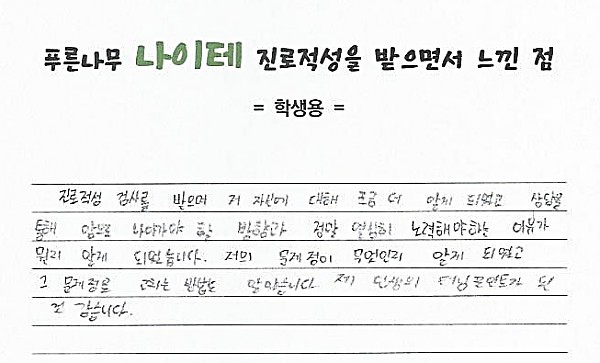 푸른나무 나이테 진로적성을 받으면서 느낀 점
= 학생용 =
진로적성 검사를 받으며 저 자신에 대해 조금 더 알게 되었고 상담을
통해 앞으로 나아가야 할 방향과 정말 열심히 노력해야하는 이유가
뭔지 알게 되었습니다. 저의 문제점이 무엇인지 알게 되었고
그 문제점을 고치는 방법도 알았습니다. 제 인생의 터닝포인트가 된
것 같습니다.